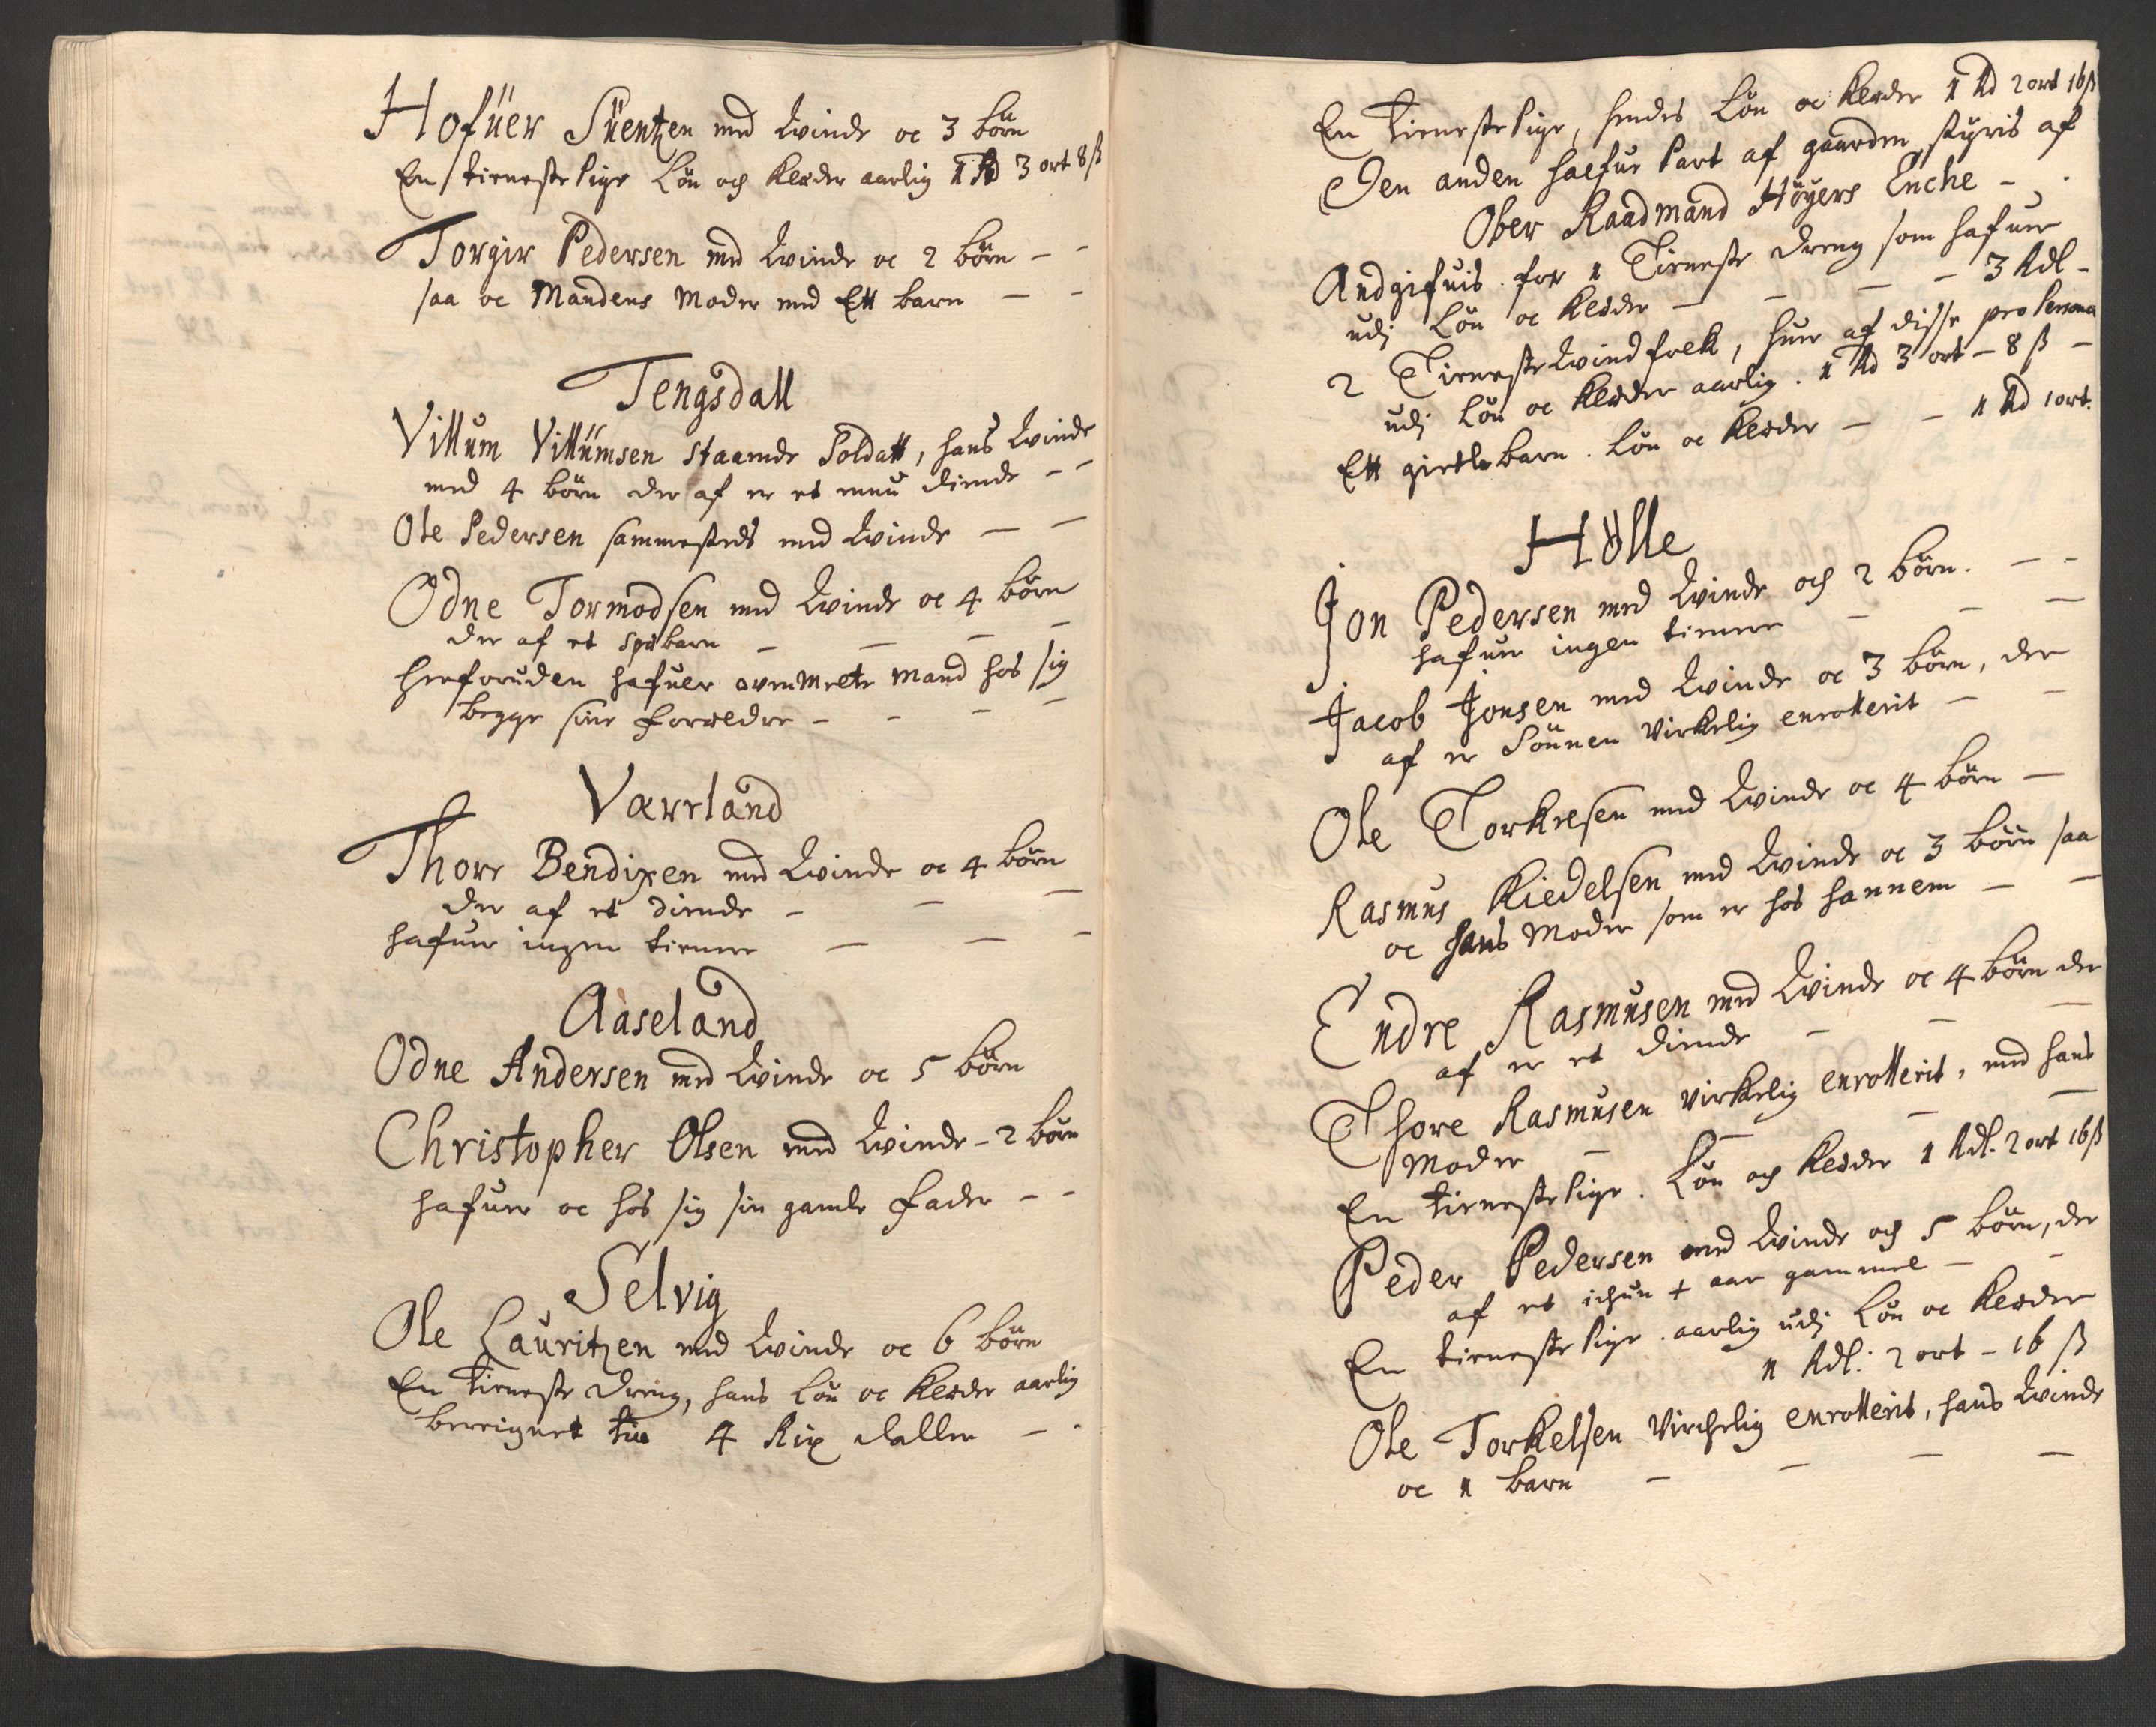 Hofuer Suentzen med Qvinde oc 3 börn
En tieneste Pige Lön och Kleder aarlig 1 Rd 3 ort 8 ß
Torgier Pedersen med Qvinde oc 2 börn -
saa oc Mandens Moder med Ett barn - -
Tengsdall
Villum Villumsen staaende Soldatt, hans Qvinde
med 4 börn der af er et enu diende - -
Ole Pedersen sammesteds med Qvinde - -
Odne Tormodsen med Qvinde oc 4 börn
der af et spæbarn - - - -
herforuden hafuer ovenmelte Mand hos sig
begge sine forældre - - - -
Værland
Thore Bendixen med Qvinde oc 4 börn
der af et diende - - -
hafuer ingen tienere - - -
Aaseland
Odne Andersen med Qvinde oc 5 börn
Christopher Olsen med Qvinde - 2 börn
hafuer oc hos sig sin gamle fader - -
Selvig
Ole Lauritzen med Qvinde oc 6 börn
En tieneste dreng, hans Lön oc Kleder aarlig
bereignet til 4 Rix daller - -
En tieneste Pige, hendes Lön oc Kleder 1 Rd 2 ort 16 ß
Den anden halfue Part af gaarden styris af
Ober Raadmand Höyers Enche -
Andgifuis for 1 Tieneste dreng som hafuer
udj Lön oc Kleder - - - - 3 Rdl -
2 Tieneste Qvindfolk, huer af disse pro Persona
udj Lön oc Kleder aarlig. 1 Rd 3 ort - 8 ß -
Ett gietle barn. Lön oc Kleder - - 1 Rd 1 ort.
Hölle
Jon Pedersen med Qvinde och 2 börn. - -
hafuer ingen tienere - - -
Jacob Jonsen med Qvinde oc 3 börn, der
af er Sönnen Virkelig enrollerit - -
Ole Torkresen med Qvinde oc 4 börn -
Rasmus Kiedelsen med Qvinde oc 3 börn saa
oc hans Moder som er hos hannem - -
Endre Rasmusen med Qvinde oc 4 börn der
af er et diende - - -
Thore Rasmusen virkelig enrollerit, med hans
Moder - - - -
En tieneste Pige. Lön och Kleder 1 Rdl. 2 ort 16 ß
Peder Pedersen med Qvinde och 5 börn, der
af et ichun + aar gammel - -
En tieneste Pige. aarlig udj Lön oc Kleder
1 Rdl: 2 ort - 16 ß
Ole Torkelsen Virchelig enrollerit, hans Qvinde
oc 1 barn - - - -